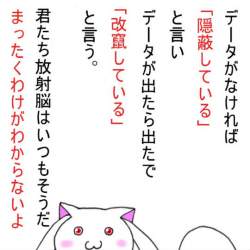 データがなければ
「隠蔽している」
と言い
データが出たら出たで
「改竄している」
と言う。
君たち放射脳はいつもそうだ
まったくわけがわからないよ